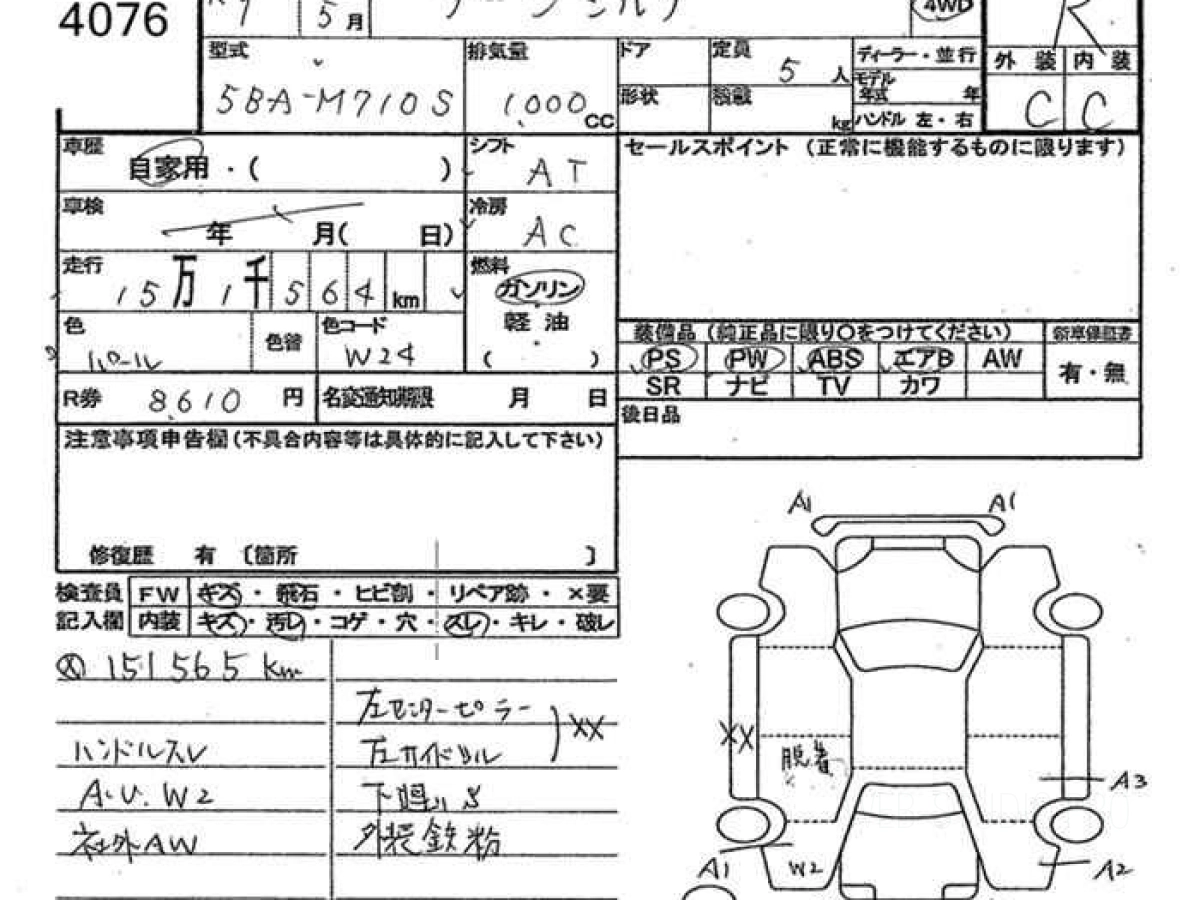 4076
5月
4WD
R
型式
排気量
ドア
定員
5人
ディーラー・並行
外装
内装
5BA-M710S
1,000cc
形状
積載
kg
モデル年式
年
ハンドル 左・右
C
C
車歴
自家用・( )
シフト
AT
セールスポイント (正常に機能するものに限ります)
車検
年 月( 日)
冷房
AC
走行
15万1千564km
燃料
ガソリン
軽油
( )
色
パール
色替
色コード
W24
装備品(純正品に限り〇をつけてください)
新車保証書
PS
PW
ABS
エアB
AW
有・無
SR
ナビ
TV
カワ
R券
8,610円
名変通知期限
月 日
後日品
注意事項申告欄(不具合内容等は具体的に記入して下さい)
修復歴 有 〔箇所 〕
検査員記入欄
FW
キズ・飛石・ヒビ割・リペア跡・×要
内装
キズ・汚レ・コゲ・穴・スレ・キレ・破レ
151565km
左センターピラー
左サイドシル
XX
ハンドルスレ
A・U・W2
下廻りS
社外AW
外装鉄粉
A1
A1
XX
脱着
A3
A1
W2
A2